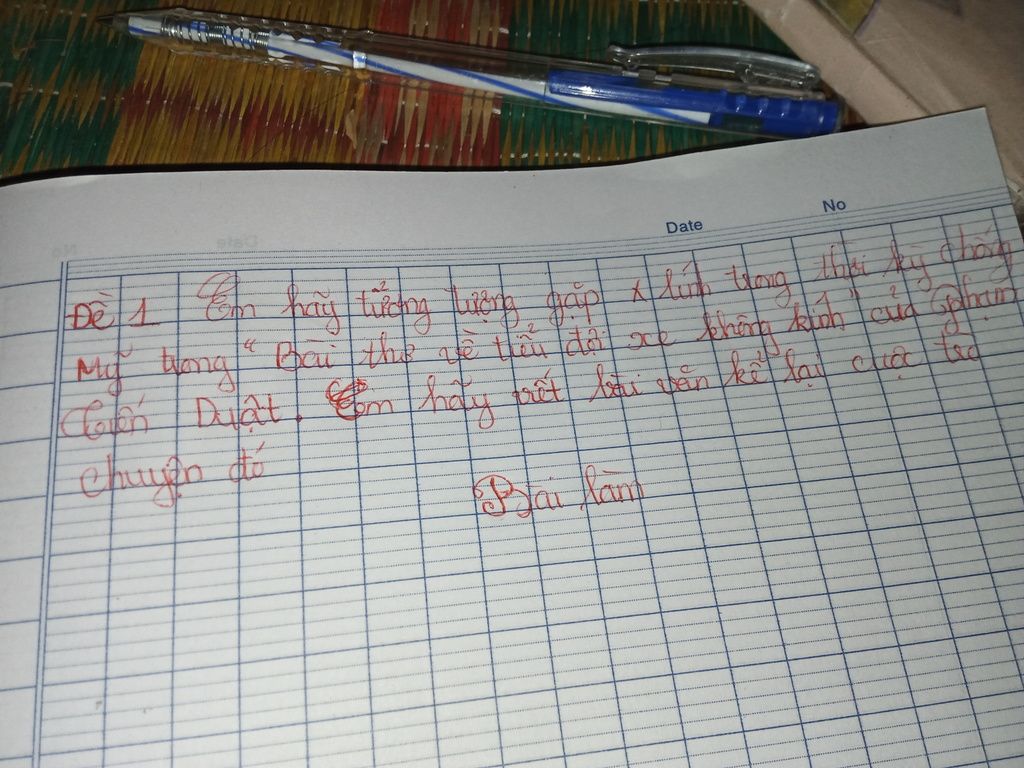 No
Date
Đề 1 Em hãy tưởng tượng gặp x lính trong thời kỳ chống
Mỹ trong "Bài thơ về tiểu đội xe không kính" của Phạm
Tiến Duật. Em hãy viết bài văn kể lại cuộc trò
chuyện đó
Bài làm